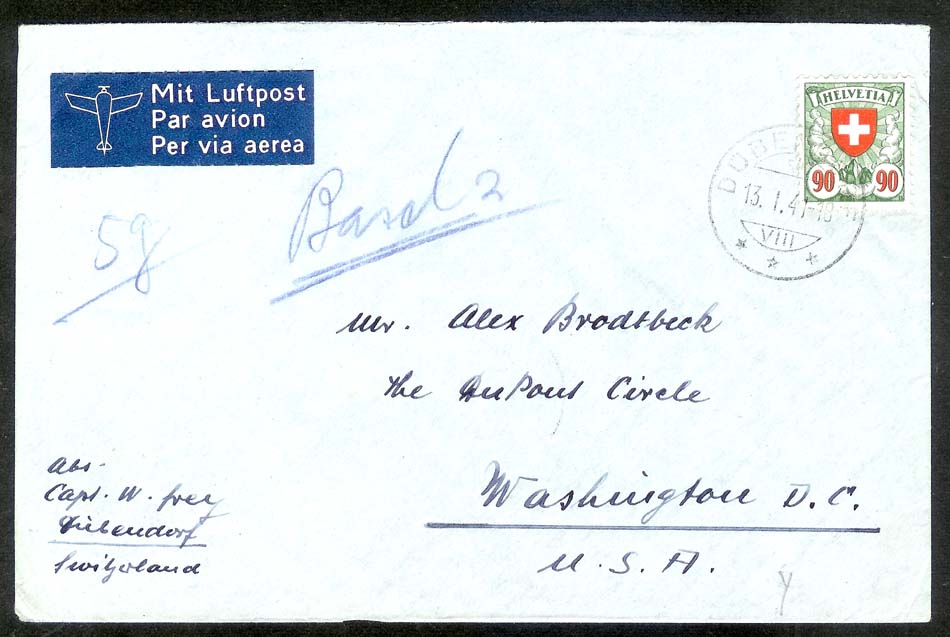 Mit Luftpost
Par avion
Per via aerea
HELVETIA
90 90
13. I. 41-18
VIII
5g
Basel 2
Mr. Alex Brodtbeck
The DuPont Circle
Washington D.C.
U.S.A.
Abs.
Capt. W. Frey
Dübendorf
Switzerland